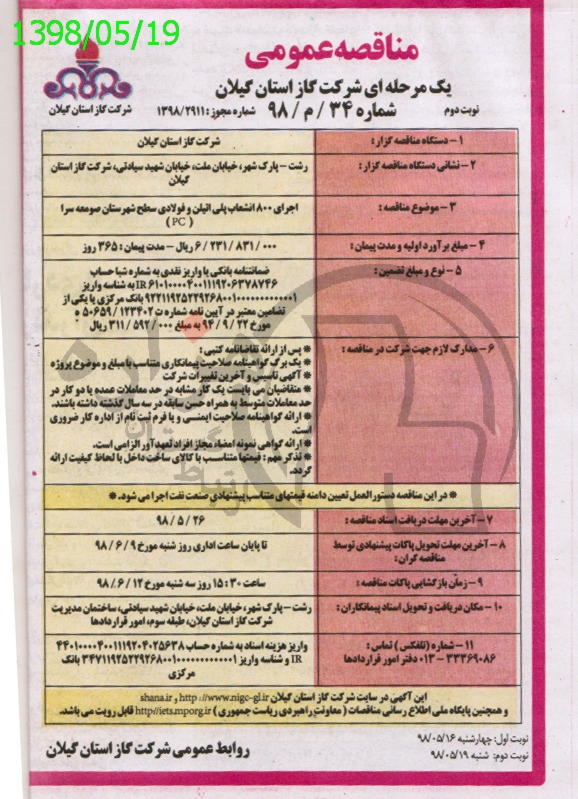 1398/05/19
مناقصه عمومی
یک مرحله ای شرکت گاز استان گیلان
نوبت دوم
شماره ۳۴ / م / ۹۸
شماره مجوز : ۱۳۹۸/۲۹۱۱
شرکت گاز استان گیلان
۱ - دستگاه مناقصه گزار :
شرکت گاز استان گیلان
۲ - نشانی دستگاه مناقصه گزار :
رشت - پارک شهر، خیابان ملت، خیابان شهید سیادتی، شرکت گاز استان
گیلان
۳ - موضوع مناقصه :
اجرای ۸۰۰ انشعاب پلی اتیلن و فولادی سطح شهرستان صومعه سرا
( PC )
۴ - مبلغ برآورد اولیه و مدت پیمان :
۶ / ۲۳۱ / ۸۳۱ / ۰۰۰ ریال - مدت پیمان : ۳۶۵ روز
۵ - نوع و مبلغ تضمین :
ضمانتنامه بانکی یا واریز نقدی به شماره شبا حساب
IR ۶۱۰۱۰۰۰۰۴۰۰۱۱۱۹۲۰۶۳۷۸۷۴۶ به شناسه واریز
بانک مرکزی یا یکی از
تضامین معتبر در آیین نامه شماره ت ۱۲۳۴۰۲ / ۵۰۶۵۹ ه
مورخ ۲۲ / ۹ / ۹۴ به مبلغ ۰۰۰ / ۵۹۲ / ۳۱۱ ریال
۶ - مدارک لازم جهت شرکت در مناقصه :
* پس از ارائه تقاضانامه کتبی :
* یک برگ گواهینامه صلاحیت پیمانکاری متناسب با مبلغ و موضوع پروژه
* آگهی تاسیس و آخرین تغییرات شرکت
* متقاضیان می بایست یک کار مشابه در حد معاملات عمده یا دو کار در
حد معاملات متوسط به همراه حسن سابقه در سه سال گذشته داشته باشند.
* ارائه گواهینامه صلاحیت ایمنی و یا فرم ثبت نام از اداره کار ضروری
است.
* ارائه گواهی نمونه امضاء مجاز افراد تعهدآور الزامی است.
* تذکر مهم : قیمتها متناسب با کالای ساخت داخل با لحاظ کیفیت ارائه
گردد.
* در این مناقصه دستورالعمل تعیین دامنه قیمتهای متناسب پیشنهادی صنعت نفت اجرا می شود. *
۷ - آخرین مهلت دریافت اسناد مناقصه :
۹۸ / ۵ / ۲۶
۸ - آخرین مهلت تحویل پاکات پیشنهادی توسط
مناقصه گران :
تا پایان ساعت اداری روز شنبه مورخ ۹ / ۶ / ۹۸
۹ - زمان بازگشایی پاکات مناقصه :
ساعت ۳۰ : ۱۵ روز سه شنبه مورخ ۱۲ / ۶ / ۹۸
۱۰ - مکان دریافت و تحویل اسناد پیمانکاران :
رشت - پارک شهر، خیابان ملت، خیابان شهید سیادتی، ساختمان مدیریت
شرکت گاز استان گیلان، طبقه سوم، امور قراردادها
۱۱ - شماره (تلفکس) تماس :
۳۳۳۶۹۰۸۶ - ۰۱۳ دفتر امور قراردادها
واریز هزینه اسناد به شماره حساب ۴۴۰۱۰۰۰۰۴۰۰۱۱۱۹۲۰۴۰۲۵۶۳۸
IR و شناسه واریز بانک
مرکزی
این آگهی در سایت شرکت گاز استان گیلان http://www.nigc-gl.ir و shana.ir
و همچنین پایگاه ملی اطلاع رسانی مناقصات (معاونت راهبردی ریاست جمهوری) http//iets.mporg.ir قابل رویت می باشد.
نوبت اول: چهارشنبه ۹۸/۰۵/۱۶
نوبت دوم: شنبه ۹۸/۰۵/۱۹
روابط عمومی شرکت گاز استان گیلان